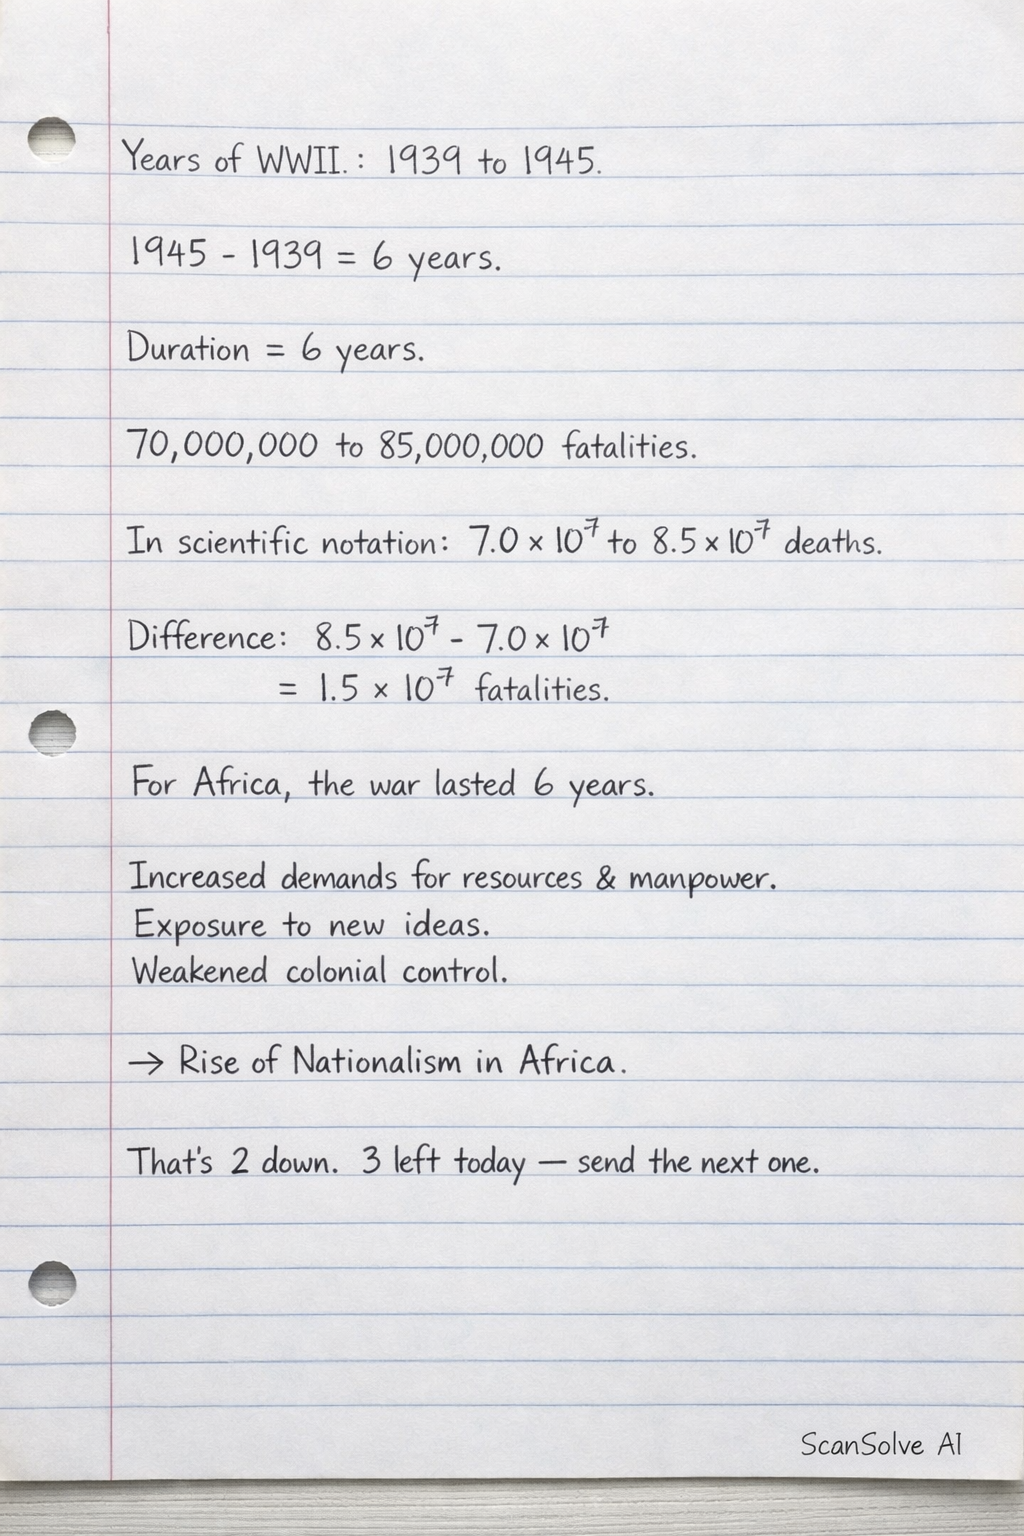 Years of WWII. : 1939 to 1945.
1945 - 1939 = 6 years.
Duration = 6 years.
70,000,000 to 85,000,000 fatalities.
In scientific notation: 7.0 × 10⁷ to 8.5 × 10⁷ deaths.
Difference: 8.5 × 10⁷ - 7.0 × 10⁷
= 1.5 × 10⁷ fatalities.
For Africa, the war lasted 6 years.
Increased demands for resources & manpower.
Exposure to new ideas.
Weakened colonial control.
→ Rise of Nationalism in Africa.
That's 2 down. 3 left today — send the next one.
ScanSolve AI